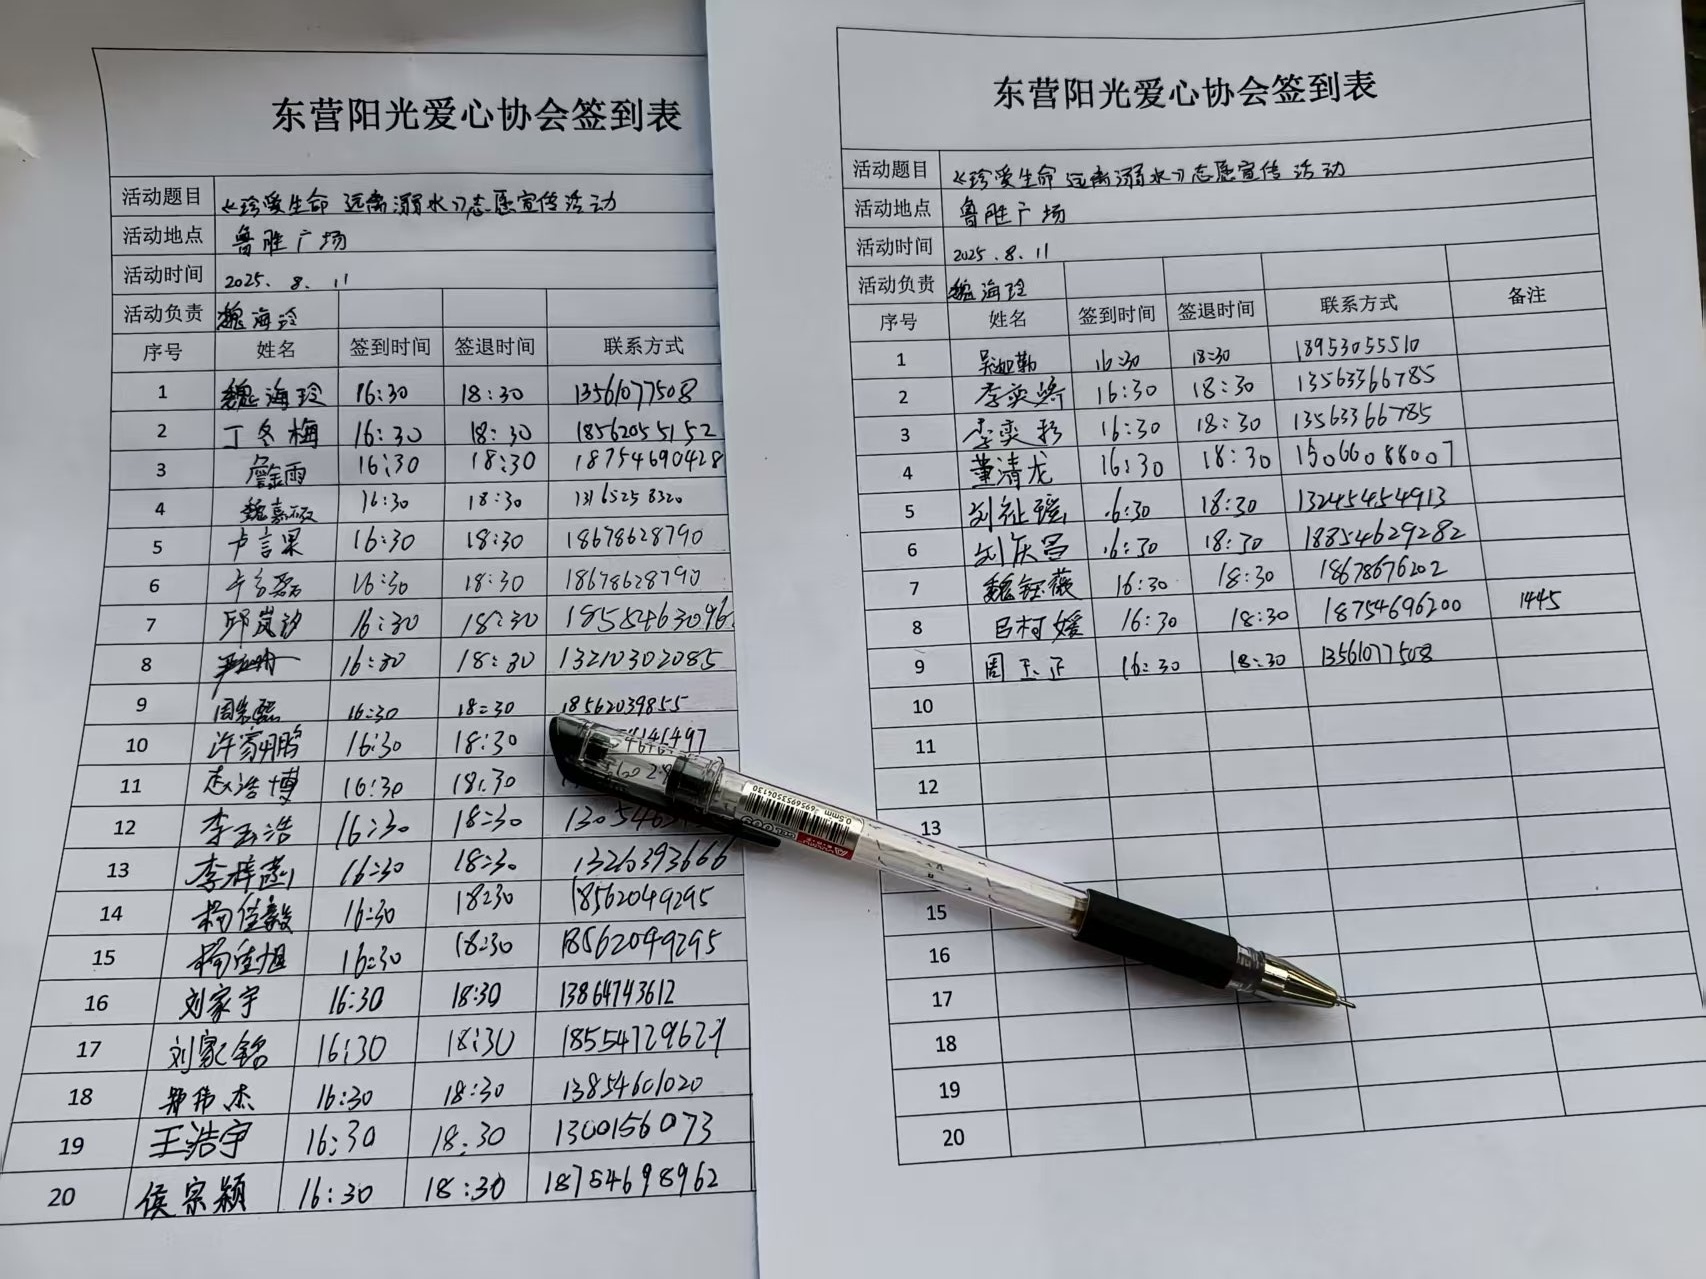 东营阳光爱心协会签到表
活动题目 《珍爱生命 远离溺水》志愿宣传活动
活动地点 鲁胜广场
活动时间 2025.8.11
活动负责 魏海玲
序号 姓名 签到时间 签退时间 联系方式
1 魏海玲 16:30 18:30 13561077508
2 丁冬梅 16:30 18:30 18562055152
3 16:30 18:30 18754690428
4 16:30 18:30 13165258320
5 卢言果 16:30 18:30 18678628790
6 16:30 18:30 18678628790
7 邱岚汐 16:30 18:30
8 16:30 18:30 13210302085
9 16:30 18:30 18562039855
10 许家鹏 16:30 18:30
11 赵浩博 16:30 18:30
12 李玉浩 16:30 18:30
13 16:30 18:30
14 杨佳毅 16:30 18:30 18562049295
15 杨佳旭 16:30 18:30 18562049295
16 刘家宇 16:30 18:30 13864743612
17 刘家铭 16:30 18:30 18554729629
18 郑伟杰 16:30 18:30 13854601020
19 王浩宇 16:30 18:30 1300156073
20 侯宗颖 16:30 18:30 18754698962
东营阳光爱心协会签到表
活动题目 《珍爱生命 远离溺水》志愿宣传活动
活动地点 鲁胜广场
活动时间 2025.8.11
活动负责 魏海玲
序号 姓名 签到时间 签退时间 联系方式 备注
1 16:30 18:30 18953055510
2 李奕 16:30 18:30 13563366785
3 李奕彤 16:30 18:30 13563366785
4 董清龙 16:30 18:30 15066088007
5 刘祉瑶 16:30 18:30 13245454913
6 刘庆昌 16:30 18:30 18854629282
7 魏钰薇 16:30 18:30 18678676202
8 吕柯媛 16:30 18:30 18754696200 1445
9 周玉正 16:30 18:30 13561077508
10
11
12
13
15
16
17
18
19
20
69596953504130
0.5mm